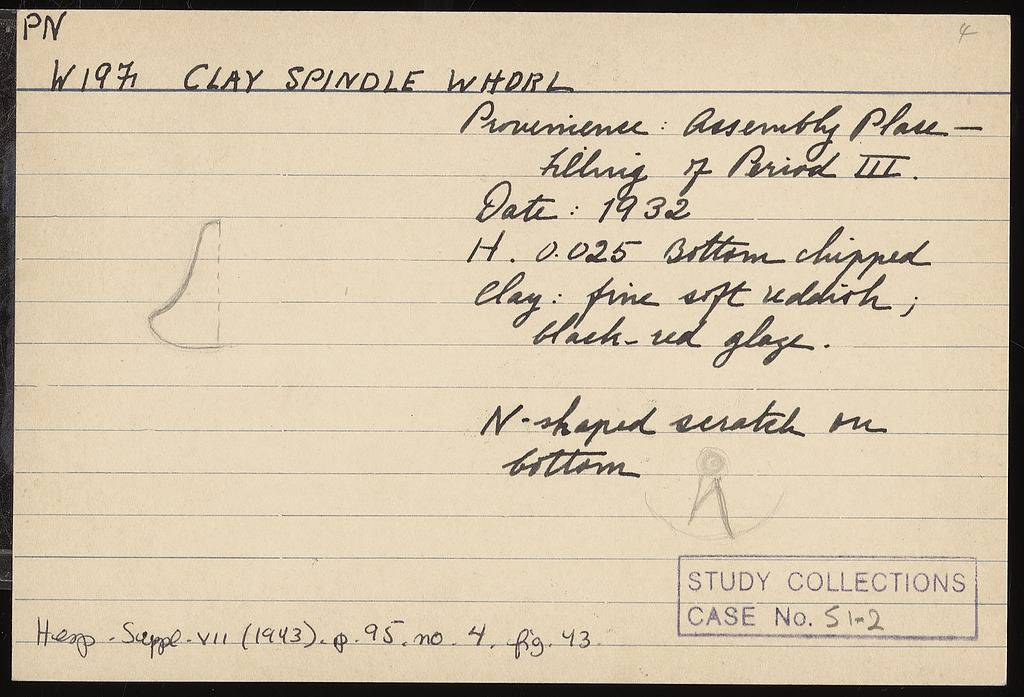 PN
4
W 197 CLAY SPINDLE WHORL
Provenience: Assembly Place —
filling of Period III.
Date: 1932
H. 0.025 Bottom chipped
Clay: fine soft reddish;
black-red glaze.
N-shaped scratch on
bottom
STUDY COLLECTIONS
CASE No. S1-2
Hesp. Suppl. VII (1943). p. 95. no. 4. fig. 43.